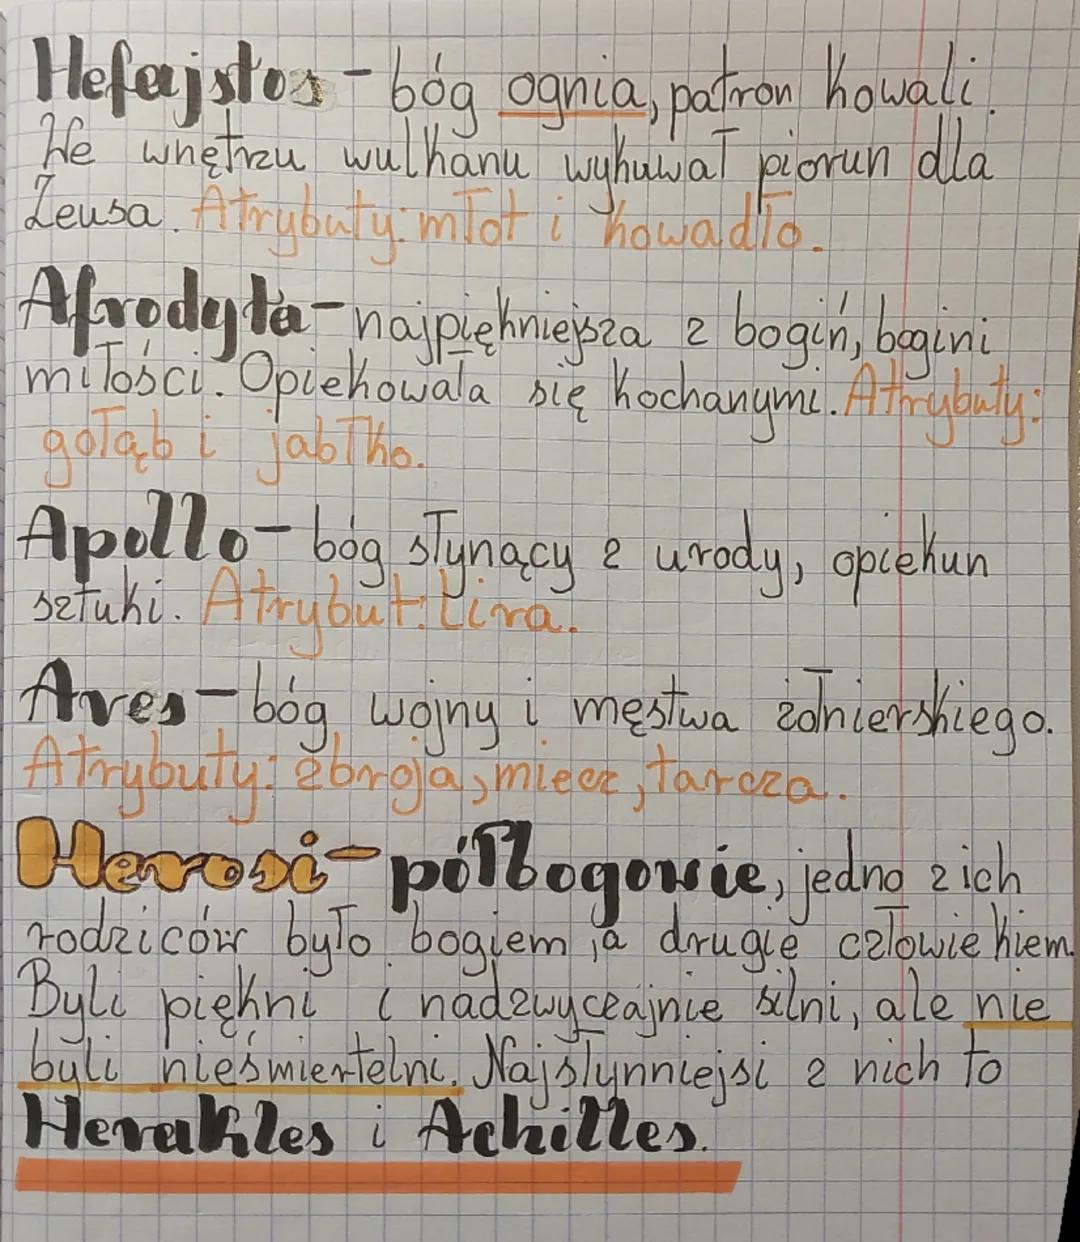 Hefajstos - bóg ognia, patron kowali.
We wnętrzu wulkanu wykuwał piorun dla
Zeusa. Atrybuty: młot i kowadło.
Afrodyta - najpiękniejsza z bogiń, bogini
miłości. Opiekowała się kochanymi. Atrybuty:
gołąb i jabłko.
Apollo - bóg słynący z urody, opiekun
sztuki. Atrybut: lira.
Ares - bóg wojny i męstwa żołnierskiego.
Atrybuty: zbroja, miecz, tarcza.
Herosi - półbogowie, jedno z ich
rodziców było bogiem, a drugie człowiekiem.
Byli piękni i nadzwyczajnie silni, ale nie
byli nieśmiertelni. Najsłynniejsi z nich to
Herakles i Achilles.